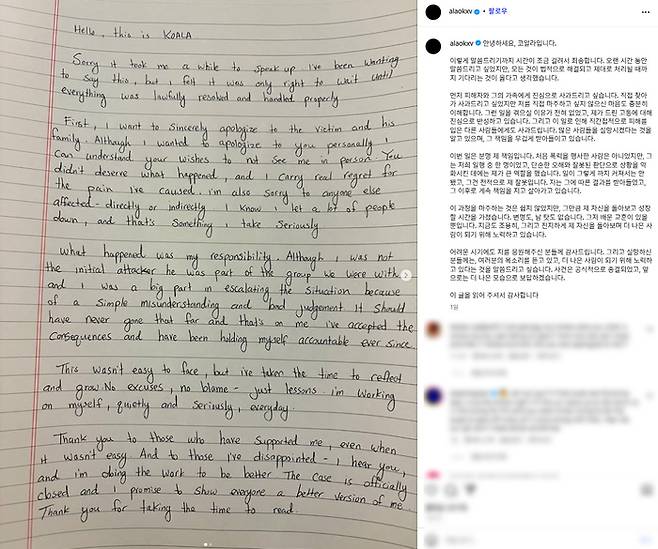 Hello, this is KOALA
Sorry it took me a while to speak up I've been wanting
to say this, but I felt it was only right to wait until
everything was lawfully resolved and handled properly
First, I want to sincerely apologize to the victim and his
family. Although I wanted to apologize to you personally I
can understand your wishes to not see me in person You
didn't deserve what happened, and I carry real regret for
the pain I've caused. i'm also sorry to anyone else
affected - directly or indirectly I know I let a lot of people
down, and that's something I take seriously
What happened was my responsibility. Although I was not
the initial attacker he was part of the group we were with
and I was a big part in escalating the situation because
of a simple misunderstanding and bad judgement It should
have never gone that far and that's on me i've accepted the
consequences and have been holding myself accountable ever since
This wasn't easy to face, but i've taken the time to reflect
and grow. No excuses, no blame - just lessons i'm working
on myself, quietly and seriously, everyday.
Thank you to those who have supported me, even when
it wasn't easy And to those i've disappointed - I hear you,
and i'm doing the work to be better The case is officially
closed and I promise to show everyone a better version of me
Thank you for taking the time to read.
alaokxv • 팔로우
alaokxv 안녕하세요, 코알라입니다.
이렇게 말씀드리기까지 시간이 조금 걸려서 죄송합니다. 오랜 시간 동안
말씀드리고 싶었지만, 모든 것이 법적으로 해결되고 제대로 처리될 때까
지 기다리는 것이 옳다고 생각했습니다.
먼저 피해자와 그의 가족에게 진심으로 사과드리고 싶습니다. 직접 찾아
가 사과드리고 싶었지만 저를 직접 마주하고 싶지 않으신 마음도 충분히
이해합니다. 그런 일을 겪으실 이유가 전혀 없었고, 제가 드린 고통에 대해
진심으로 반성하고 있습니다. 그리고 이 일로 인해 직간접적으로 피해를
입은 다른 사람들에게도 사과드립니다. 많은 사람들을 실망시켰다는 것을
알고 있으며, 그 책임을 무겁게 받아들이고 있습니다.
이번 일은 분명 제 책임입니다. 처음 폭력을 행사한 사람은 아니었지만, 그
는 저희 일행 중 한 명이었고, 단순한 오해와 잘못된 판단으로 상황을 악
화시킨 데에는 제가 큰 역할을 했습니다. 일이 그렇게까지 커져서는 안
됐고, 그건 전적으로 제 잘못입니다. 저는 그에 따른 결과를 받아들였고,
그 이후로 계속 책임을 지고 살아가고 있습니다.
이 과정을 마주하는 것은 쉽지 않았지만, 그만큼 제 자신을 돌아보고 성장
할 시간을 가졌습니다. 변명도, 남 탓도 없습니다. 그저 배운 교훈이 있을
뿐입니다. 지금도 조용히, 그리고 진지하게 제 자신을 돌아보며 더 나은 사
람이 되기 위해 노력하고 있습니다.
어려운 시기에도 저를 응원해주신 분들께 감사드립니다. 그리고 실망하신
분들께는, 여러분의 목소리를 듣고 있고, 더 나은 사람이 되기 위해 노력하
고 있다는 것을 말씀드리고 싶습니다. 사건은 공식적으로 종결되었고, 앞
으로는 더 나은 모습으로 보답하겠습니다.
이 글을 읽어 주셔서 감사합니다
1일